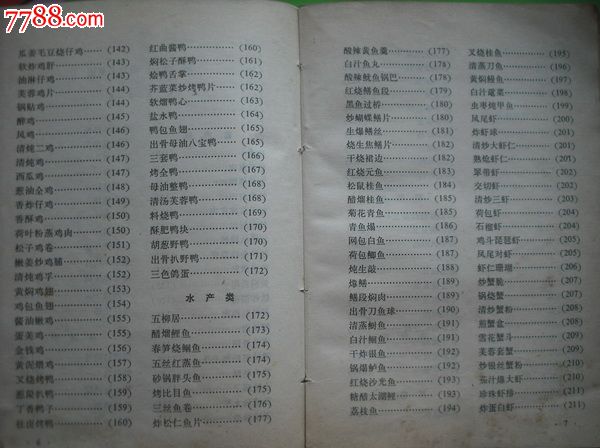 7788.com
瓜姜毛豆烧仔鸡……(142)
软炸鸡肝……(143)
油淋仔鸡……(143)
芙蓉鸡片……(144)
锅贴鸡……(144)
醉鸡……(145)
风鸡……(145)
清炖二鸡……(146)
清炖鸡……(147)
西瓜鸡……(148)
葱油全鸡……(149)
香炒仔鸡……(149)
香酥鸡……(150)
荷叶粉蒸鸡肉……(150)
松子鸡卷……(151)
嫩姜炒鸡脯……(152)
清炖鸡孚……(152)
黄焖鸡翅……(153)
鸡包鱼翅……(154)
酱油嫩鸡……(155)
蛋美鸡……(156)
金钱鸡……(156)
黄泥煨鸡……(157)
叉烧烤鸭……(158)
葱扒鸭……(159)
丁香鸭子……(159)
挂卤烤鸭……(160)
6
红曲酱鸭……(160)
焖松子酥鸭……(161)
烩鸭舌掌……(162)
芥蓝菜炒烤鸭片……(162)
软熘鸭心……(163)
盐水鸭……(164)
鸭包鱼翅……(165)
出骨母油八宝鸭……(165)
三套鸭……(166)
烤全鸭……(167)
母油整鸭……(168)
清汤芙蓉鸭……(168)
料烧鸭……(169)
酥肥鸭块……(170)
胡葱野鸭……(170)
出骨扒野鸭……(171)
三色鸽蛋……(172)
水产类
五柳居……(172)
醋熘鲤鱼……(173)
春笋烧鲴鱼……(174)
五丝红蒸鱼……(174)
砂锅胖头鱼……(175)
烤比目鱼……(176)
三丝鱼卷……(176)
炸松仁鱼片……(177)
酸辣黄鱼羹……(177)
白汁鱼丸……(178)
酸辣鱿鱼锅巴……(178)
红烧鳝鱼段……(179)
黑鱼过桥……(180)
炒蝴蝶鳝片……(181)
生爆鳝丝……(181)
烧生焦鳝片……(182)
干烧裙边……(182)
红烧元鱼……(183)
松鼠桂鱼……(184)
醋熘桂鱼……(185)
菊花青鱼……(186)
青鱼爌……(186)
网包白鱼……(187)
荷包鲫鱼……(188)
炖生敲……(188)
爆鳝……(189)
鳝段焖肉……(189)
出骨刀鱼球……(190)
清蒸鲥鱼……(191)
白汁鮰鱼……(192)
干炸银鱼……(192)
锅爆鲈鱼……(192)
红烧沙光鱼……(193)
糖醋太湖鲤……(193)
荔枝鱼……(194)
叉烧桂鱼……(195)
清蒸刀鱼……(196)
黄焖鳗鱼……(197)
白汁鼋菜……(198)
虫枣炖甲鱼……(199)
凤尾虾……(200)
炸虾球……(200)
清炒大虾仁……(201)
熟炝虾仁……(201)
翠带虾……(202)
交切虾……(202)
清炒三虾……(203)
荷包虾……(204)
石榴虾……(204)
鸡斗琵琶虾……(205)
凤尾对虾……(205)
虾仁珊瑚……(206)
炒蟹脆……(207)
锅烧蟹……(207)
清炒蟹粉……(208)
煎蟹盒……(208)
雪花蟹斗……(209)
芙蓉套蟹……(209)
炒银丝蟹粉……(210)
茄汁爆大虾……(210)
珍珠虾排……(211)
炸蛋白虾……(211)
7